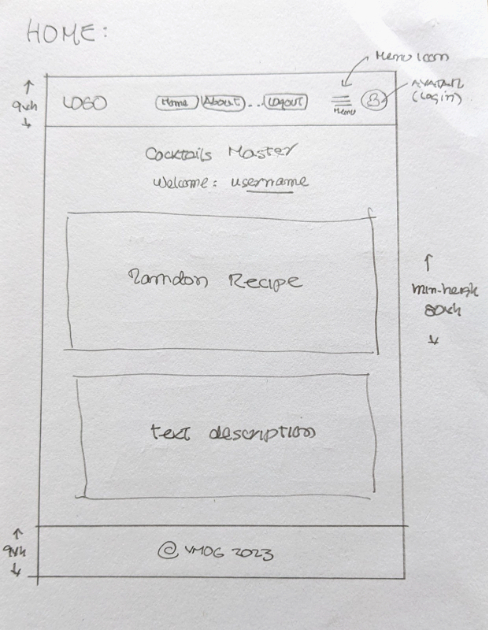 HOME:
Menu Icon
AVATAR
(Login)
9vh
LOGO
Home
About
...
Logout
Menu
Cocktails Master
Welcome: username
Ramdon Recipe
min-heigh
80vh
text description
9vh
@ VMOG 2023